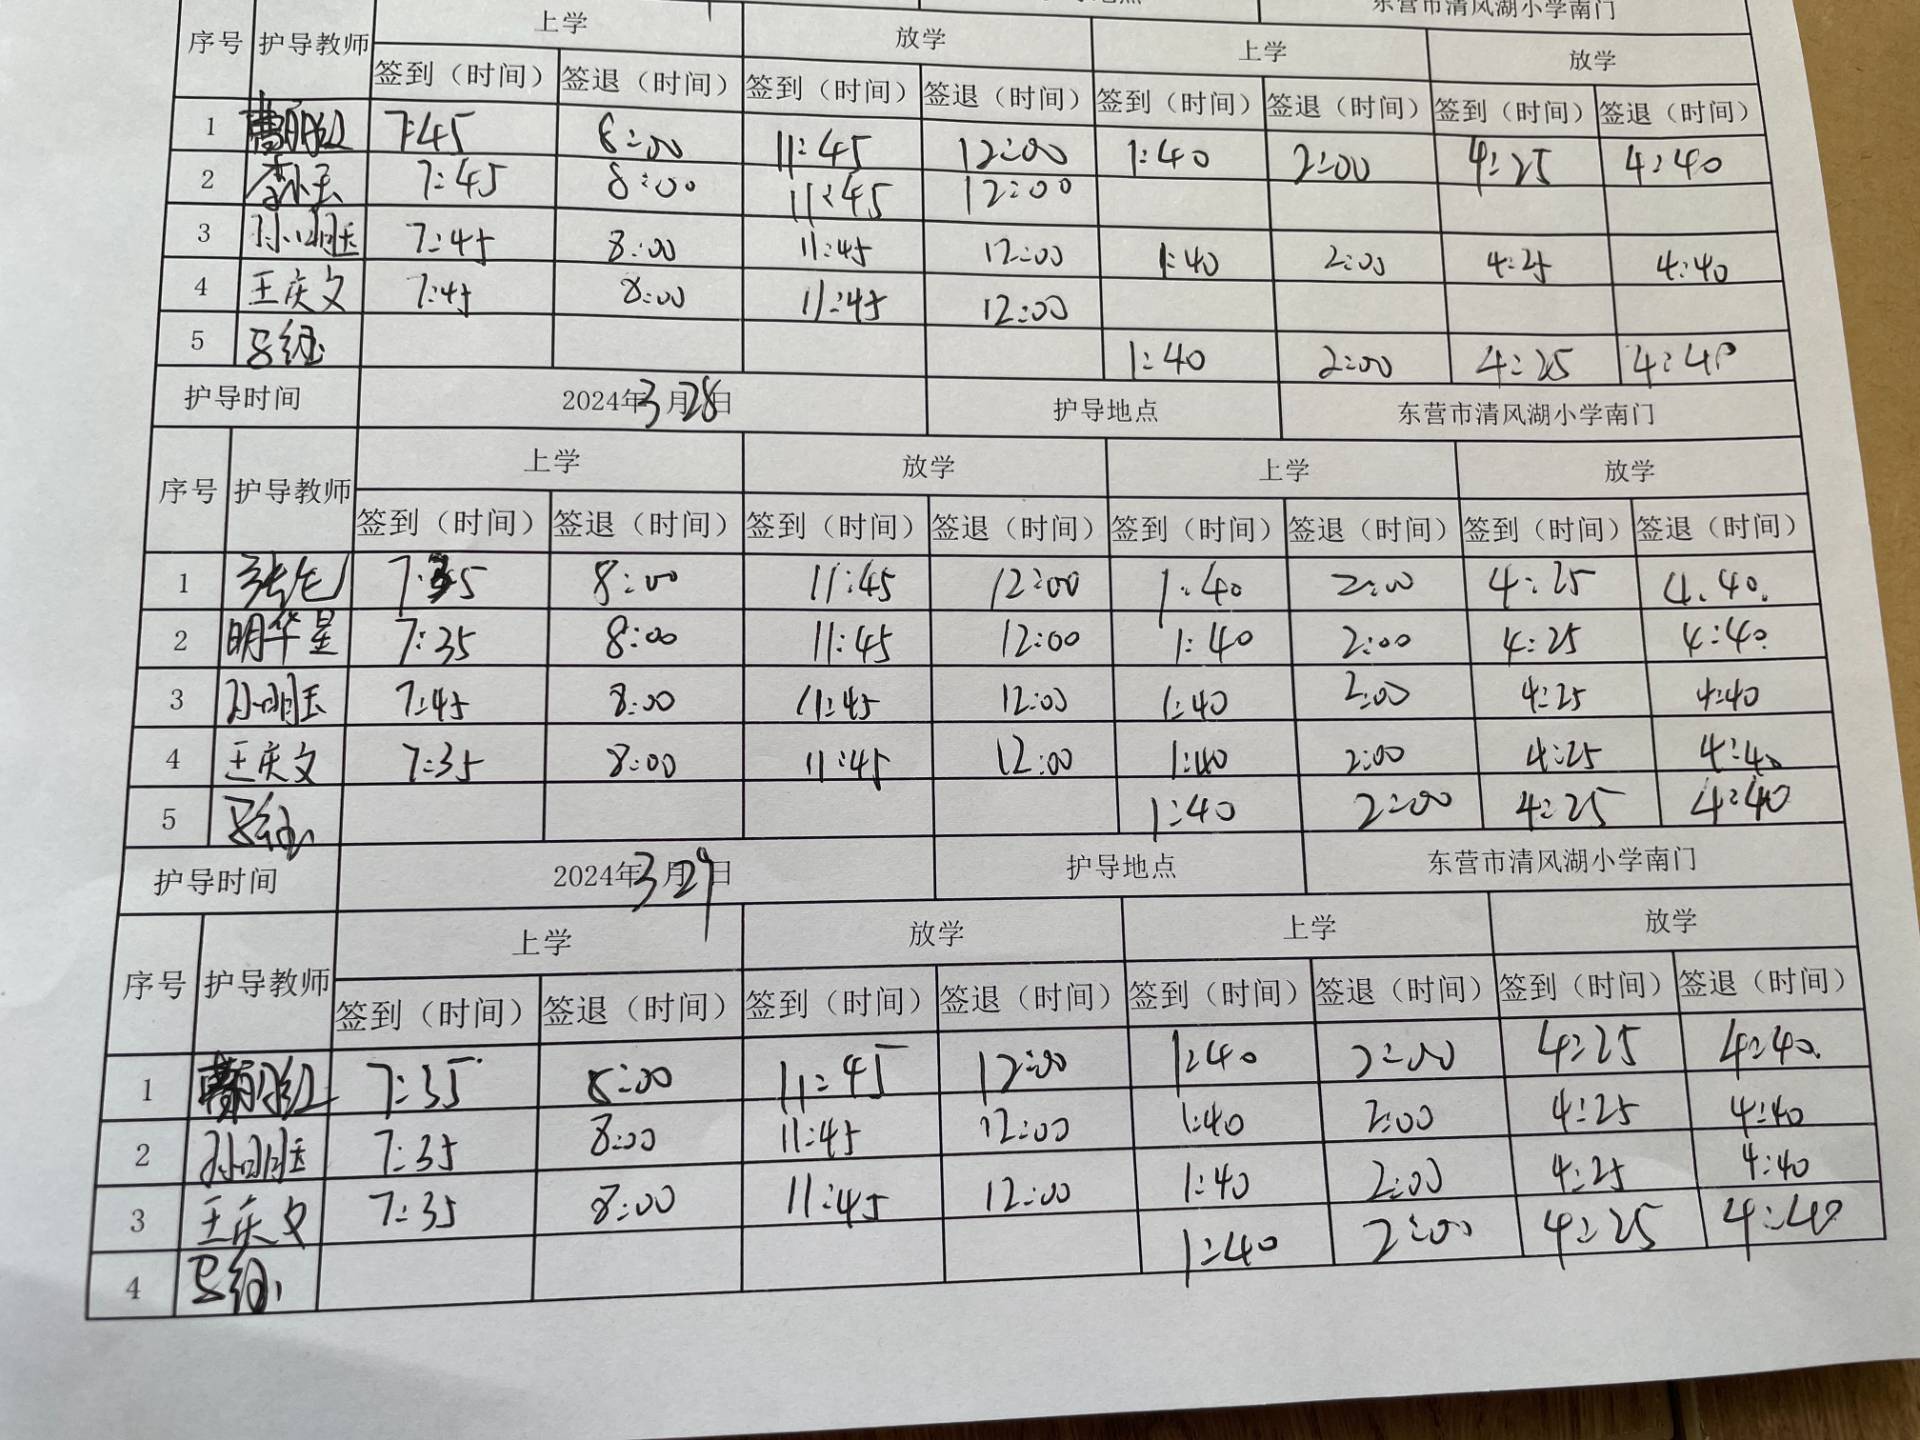 护导地点 东营市清风湖小学南门
序号 护导教师 上学 放学 上学 放学
签到（时间） 签退（时间） 签到（时间） 签退（时间） 签到（时间） 签退（时间） 签到（时间） 签退（时间）
1 7:45 8:00 11:45 12:00 1:40 2:00 4:25 4:40
2 7:45 8:00 11:45 12:00
3 孙明玉 7:45 8:00 11:45 12:00 1:40 2:00 4:25 4:40
4 王庆文 7:45 8:00 11:45 12:00
5 1:40 2:00 4:25 4:40
护导时间 2024年3月28日 护导地点 东营市清风湖小学南门
序号 护导教师 上学 放学 上学 放学
签到（时间） 签退（时间） 签到（时间） 签退（时间） 签到（时间） 签退（时间） 签到（时间） 签退（时间）
1 8:00 11:45 12:00 1:40 2:00 4:25 4.40.
2 明华星 7:35 8:00 11:45 12:00 1:40 2:00 4:25 4:40
3 孙明玉 7:45 8:00 11:45 12:00 1:40 2:00 4:25 4:40
4 王庆文 7:35 8:00 11:45 12:00 1:40 2:00 4:25 4:40
5 1:40 2:00 4:25 4:40
护导时间 2024年3月29日 护导地点 东营市清风湖小学南门
序号 护导教师 上学 放学 上学 放学
签到（时间） 签退（时间） 签到（时间） 签退（时间） 签到（时间） 签退（时间） 签到（时间） 签退（时间）
1 7:35 8:00 11:45 12:00 1:40 2:00 4:25 4:40.
2 孙明玉 7:35 8:00 11:45 12:00 1:40 2:00 4:25 4:40
3 王庆文 7:35 8:00 11:45 12:00 1:40 2:00 4:25 4:40
4 1:40 2:00 4:25 4:40